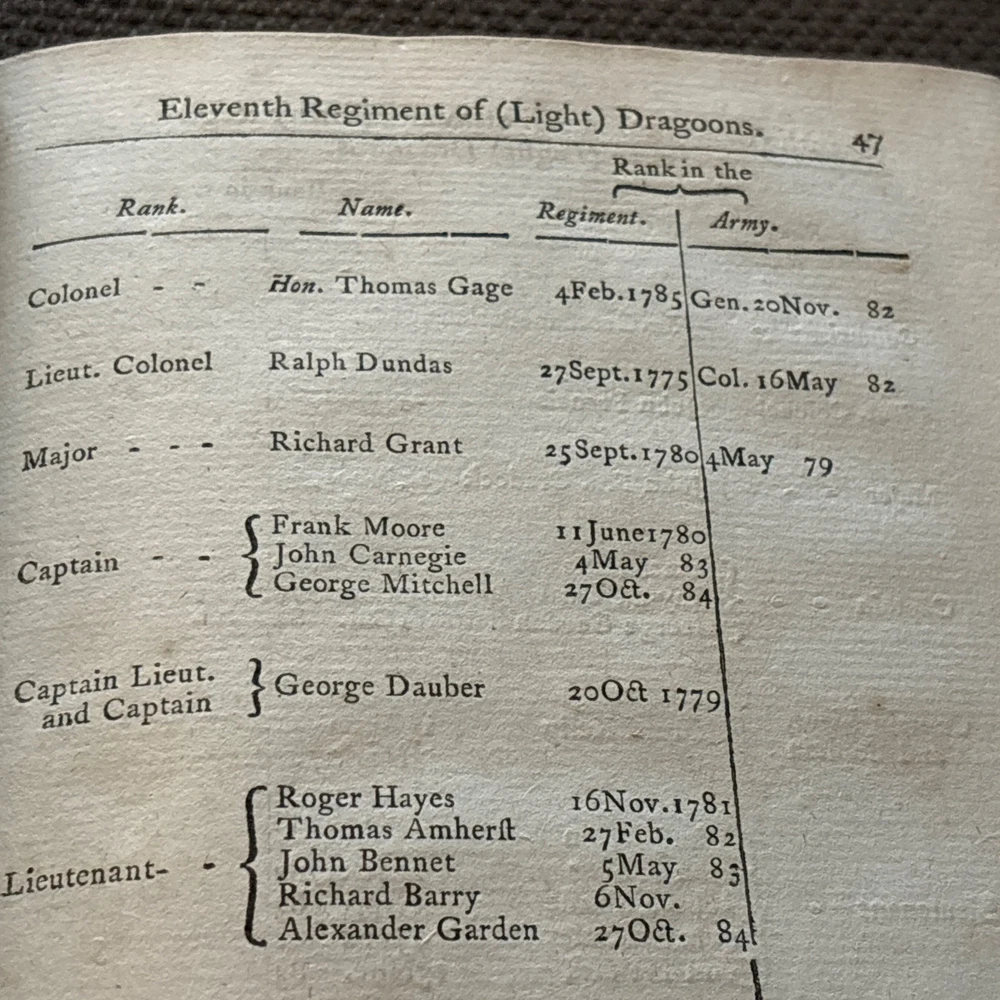 Eleventh Regiment of (Light) Dragoons. 47
Rank in the
Rank. Name. Regiment. Army.
Colonel - - Hon. Thomas Gage 4Feb.1785 Gen. 20Nov. 82
Lieut. Colonel Ralph Dundas 27Sept.1775 Col. 16May 82
Major - - - Richard Grant 25Sept.1780 4May 79
Frank Moore 11June1780
Captain - - John Carnegie 4May 83
George Mitchell 27Oct. 84
Captain Lieut.
and Captain George Dauber 20Oct 1779
Roger Hayes 16Nov.1781
Thomas Amherſt 27Feb. 82
Lieutenant- - John Bennet 5May 83
Richard Barry 6Nov.
Alexander Garden 27Oct. 84